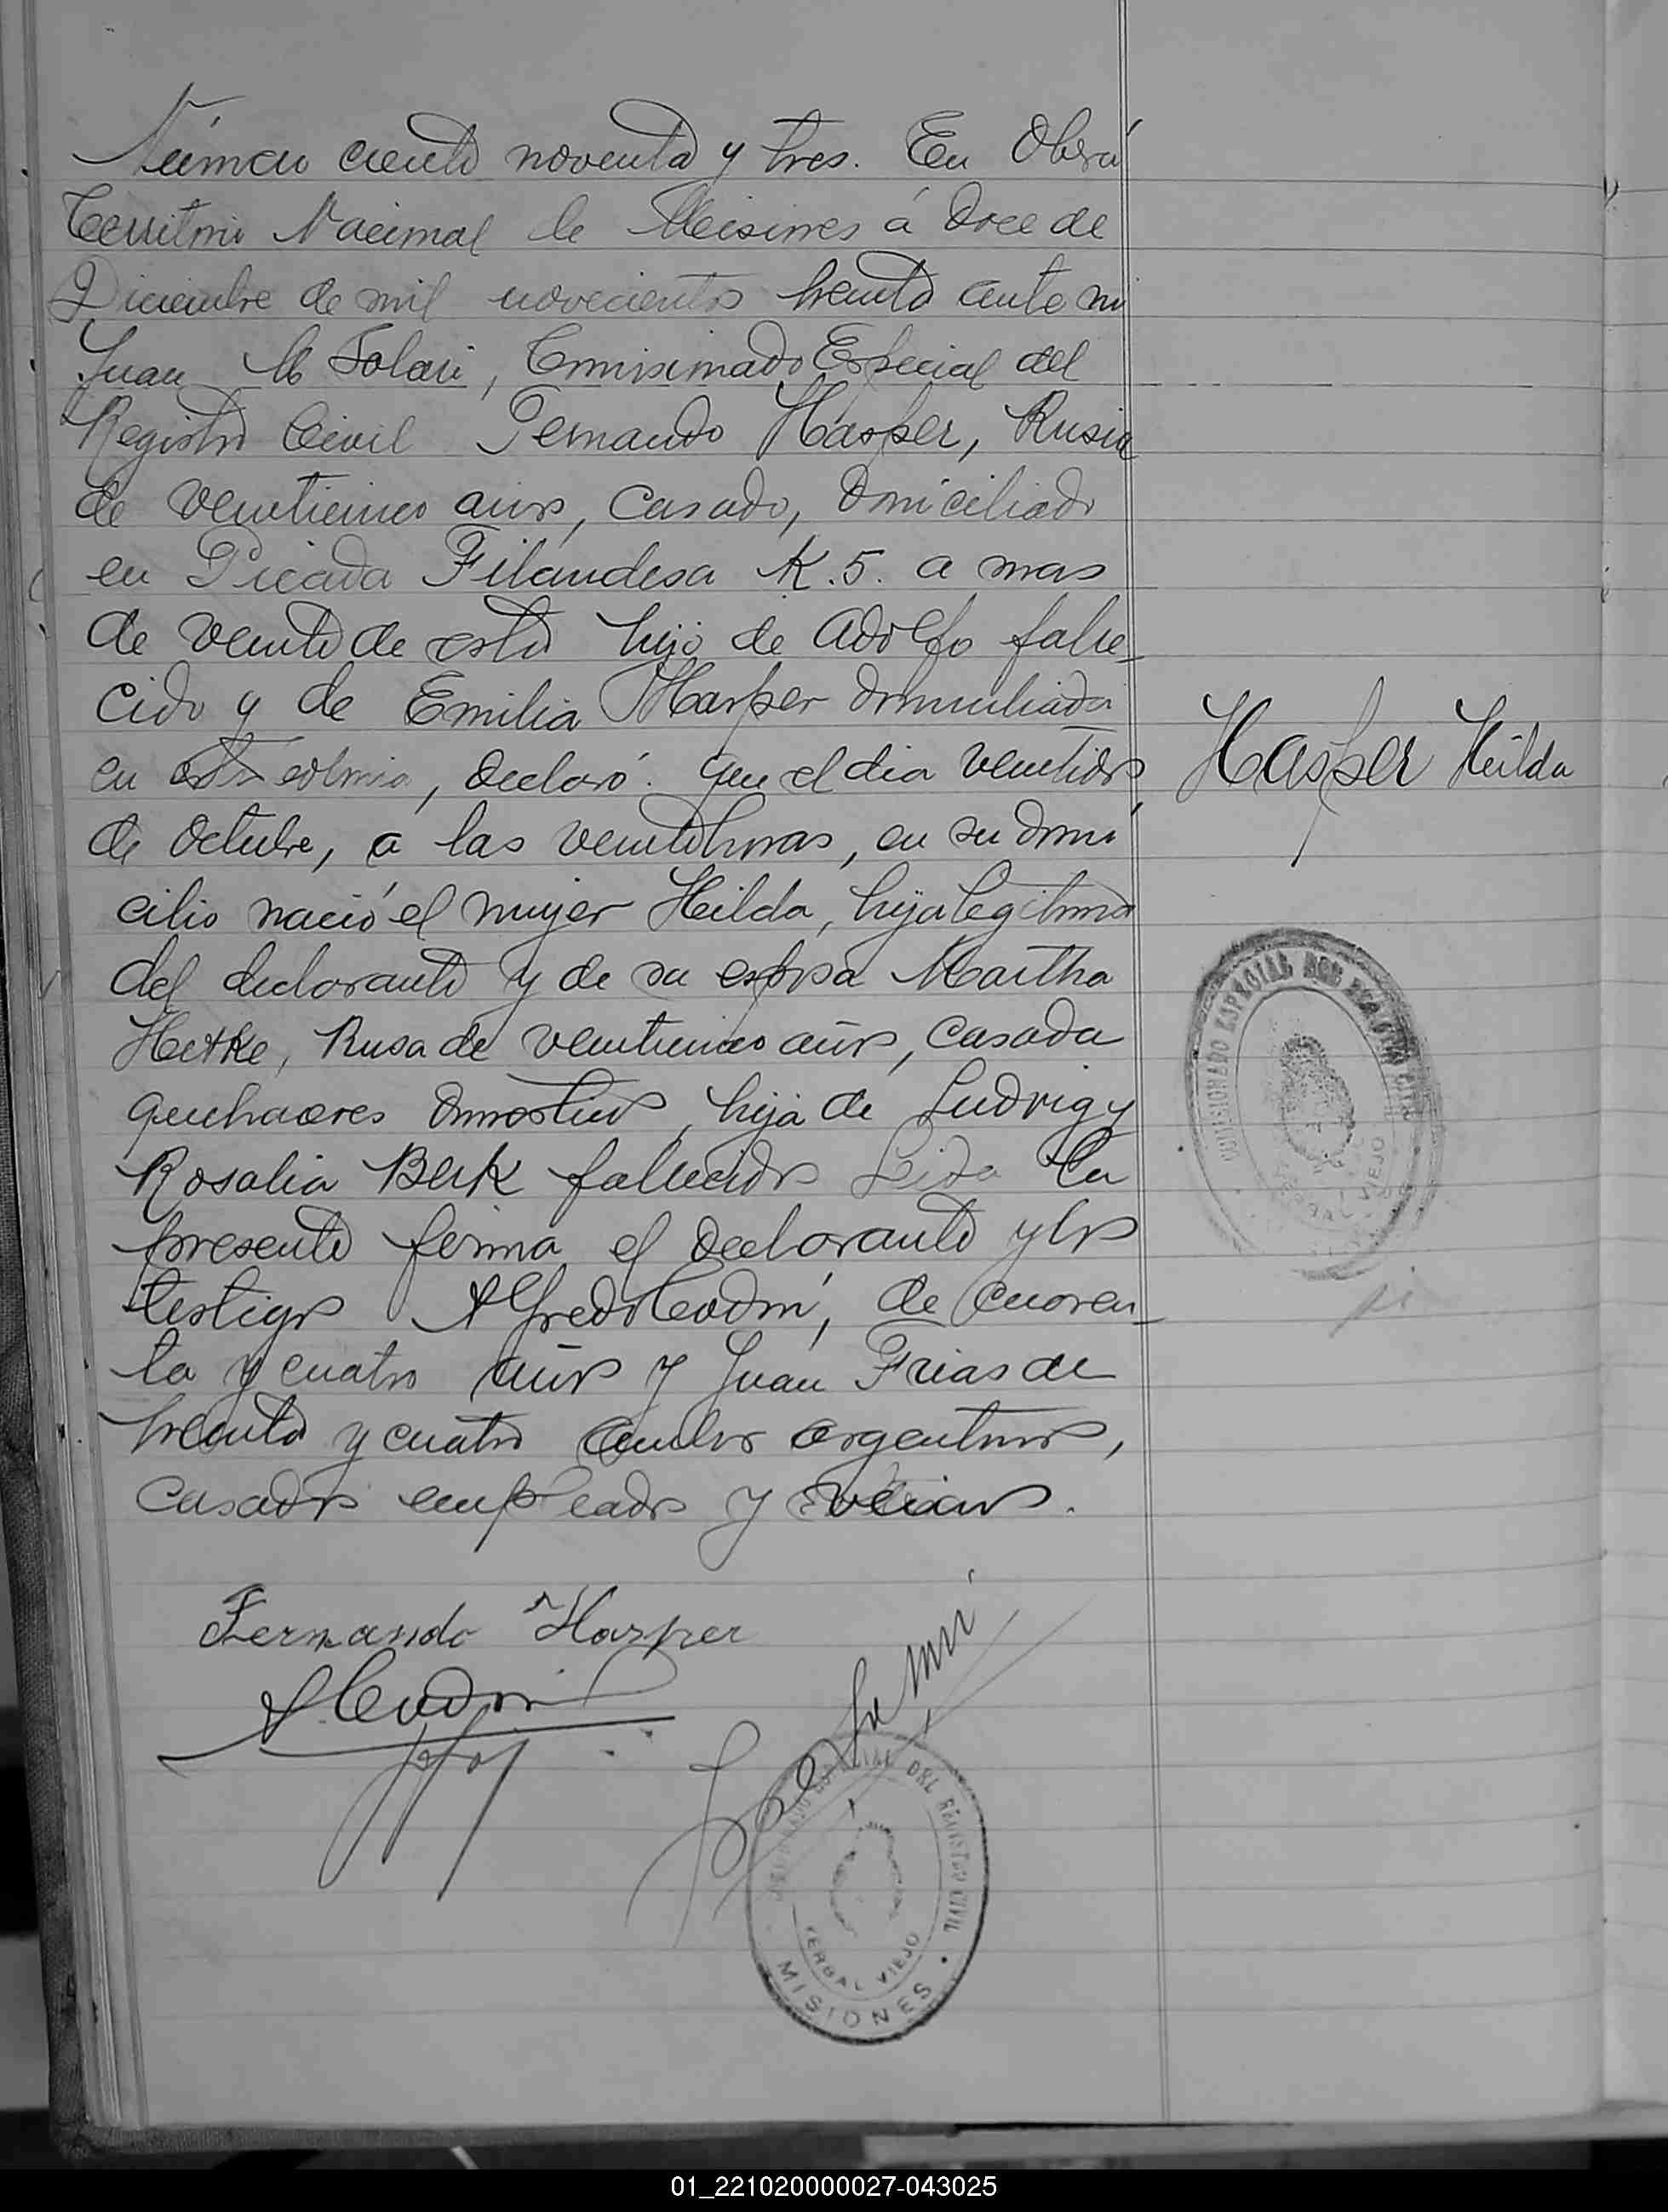 Número ciento noventa y tres. En Oberá
Territorio Nacional de Misiones á doce de
Diciembre de mil novecientos treinta ante mi
Juan M Solari, Comisionado Especial del
Registro Civil Fernando Hasper, Rusia
de veinticinco años, casado, domiciliado
en Picada Filandesa K.5. a mas
de veinte de esta hijo de Adolfo falle-
cido y de Emilia Harper domiciliada
en esta colonia, declaró. Que el dia veintidos
de Octubre, a las veinte horas, en su domi
cilio nació el mujer Hilda, hija legitima
del declarante y de su esposa Martha
Hetke, Rusa de veinticinco años, casada
quehaceres domesticos, hija de Ludvig y
Rosalia Berk fallecidos Leida la
presente firma el declarante y los
testigos Alfredo de cuaren-
ta y cuatro años y Juan Frias de
treinta y cuatro ambos argentinos,
casados empleados y vecinos.
Hasper Hilda
COMISIONADO ESPECIAL DEL REGISTRO CIVIL
YERBAL VIEJO
Fernando Harper
COMISIONADO ESPECIAL DEL REGISTRO CIVIL
YERBAL VIEJO
MISIONES
01_221020000027-043025